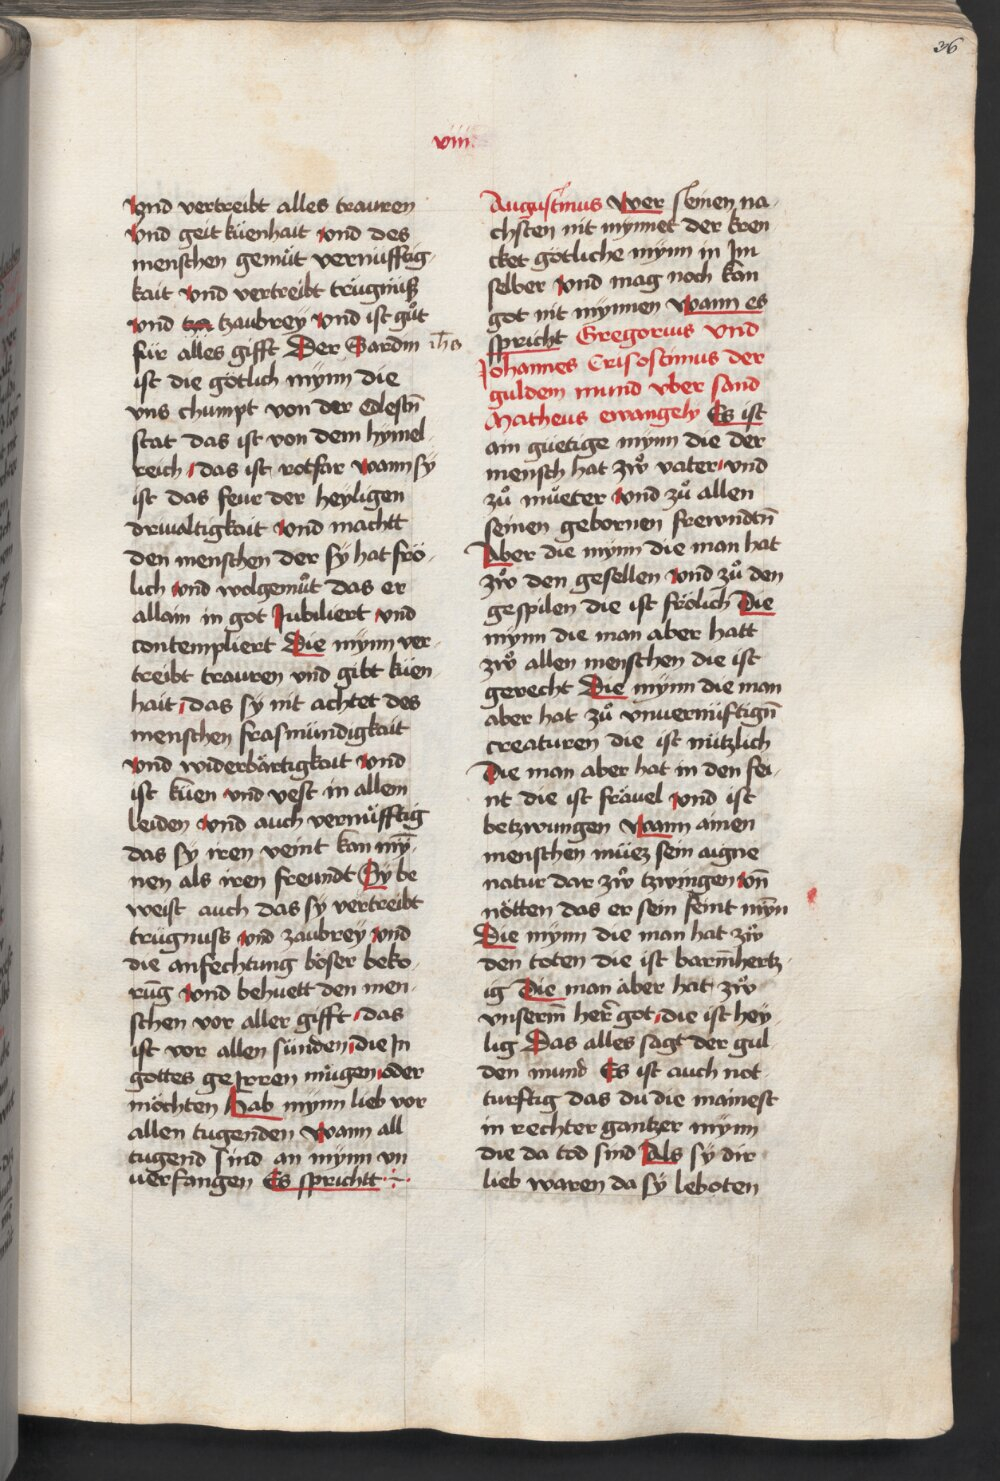 36
viii
Vnd vertreibt alles trauren
vnd geit küenhait vnd des
menschen gemüt vernüfftig
kait vnd vertreibt trügnüß
vnd tza tzaubrey vnd ist gůt
für alles gifft Der Sardin ihs
ist die götlich mynn die
vns chumpt von der Edlestn̄
stat das ist von dem hymel
reich das ist rotfar wann sy
ist das feur der heyligen
driualtigkait vnd machtt
den menschen der sy hat frö
lich vnd wolgemůt das er
allain in got Jubiliert vnd
contempliert Die mynn ver
treibt trauren vnd gibt küen
hait das sy nit achtet des
menschen frasmündigkait
vnd widerbärtigkait vnd
ist küen vnd vest in allem
leiden vnd auch vernüfftig
das sy iren veint kan mȳ
nen als iren freundt Sy be
weist auch das sy vertreibt
trügnuss vnd zaubrey vnd
die anfechtung böser beko
rūg vnd behuett den men
schen vor aller gifft das
ist vor allen sünden die In
gottes geIrren mügen oder
möchten Hab mynn lieb vor
allen tugenden wann all
tugend sind an mynn vn
uerfangen Es sprichtt
Augustinus Wer seinen na
chsten nit mynnet der kren
cket götliche mynn in Im
selber vnd mag noch kan
got nit mynnen wann es
spricht Gregorius vnd
Johannes Crisostimus der
guldem mund vber sand
Matheus ewangely Es ist
ain güetige mynn die der
mensch hat zẘ vater vnd
zů můeter vnd zů allen
seinen gebornen frewndtn̄
Aber die mynn die man hat
zẘ den gesellen vnd zů den
gespilen die ist frölich Die
mynn die man aber hatt
zẘ allen menschen die ist
gerecht Die mynn die man
aber hat zů vnuernüftign̄
creaturen die ist nützlich
Die man aber hat in den fei
nt die ist fräuel vnd ist
betzwungen wann ainen
menschen müez sein aigne
natur dar zẘ tzwingen vn̄
nötten das er sein feint mȳn
Die mynn die man hat zẘ
den toten die ist barm̄hertz
ig Die man aber hat zẘ
vnserm̄ her̄ got die ist hey
lig Das alles sagt der gul
den mund Es ist auch not
turftig das du die mainest
in rechter gantzer mynn
die da tod sind Als sy dir
lieb waren da sy leboten